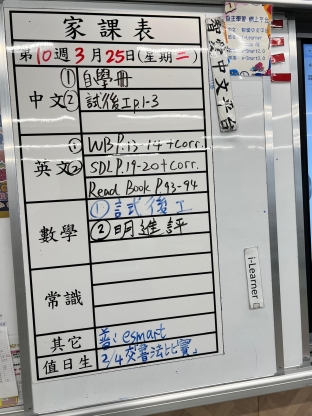 家課表
第10週3月25日(星期二)
中文
① 自學冊
② 試後工p1-3
英文
① WB P.13-14+Corr.
② SDL P.19-20+Corr.
Read Book P.93-94
數學
① 試後工
② 明進評
常識
其它
普: esmart
值日生
2/4交書法比賽
智評中文平台
i-Learner